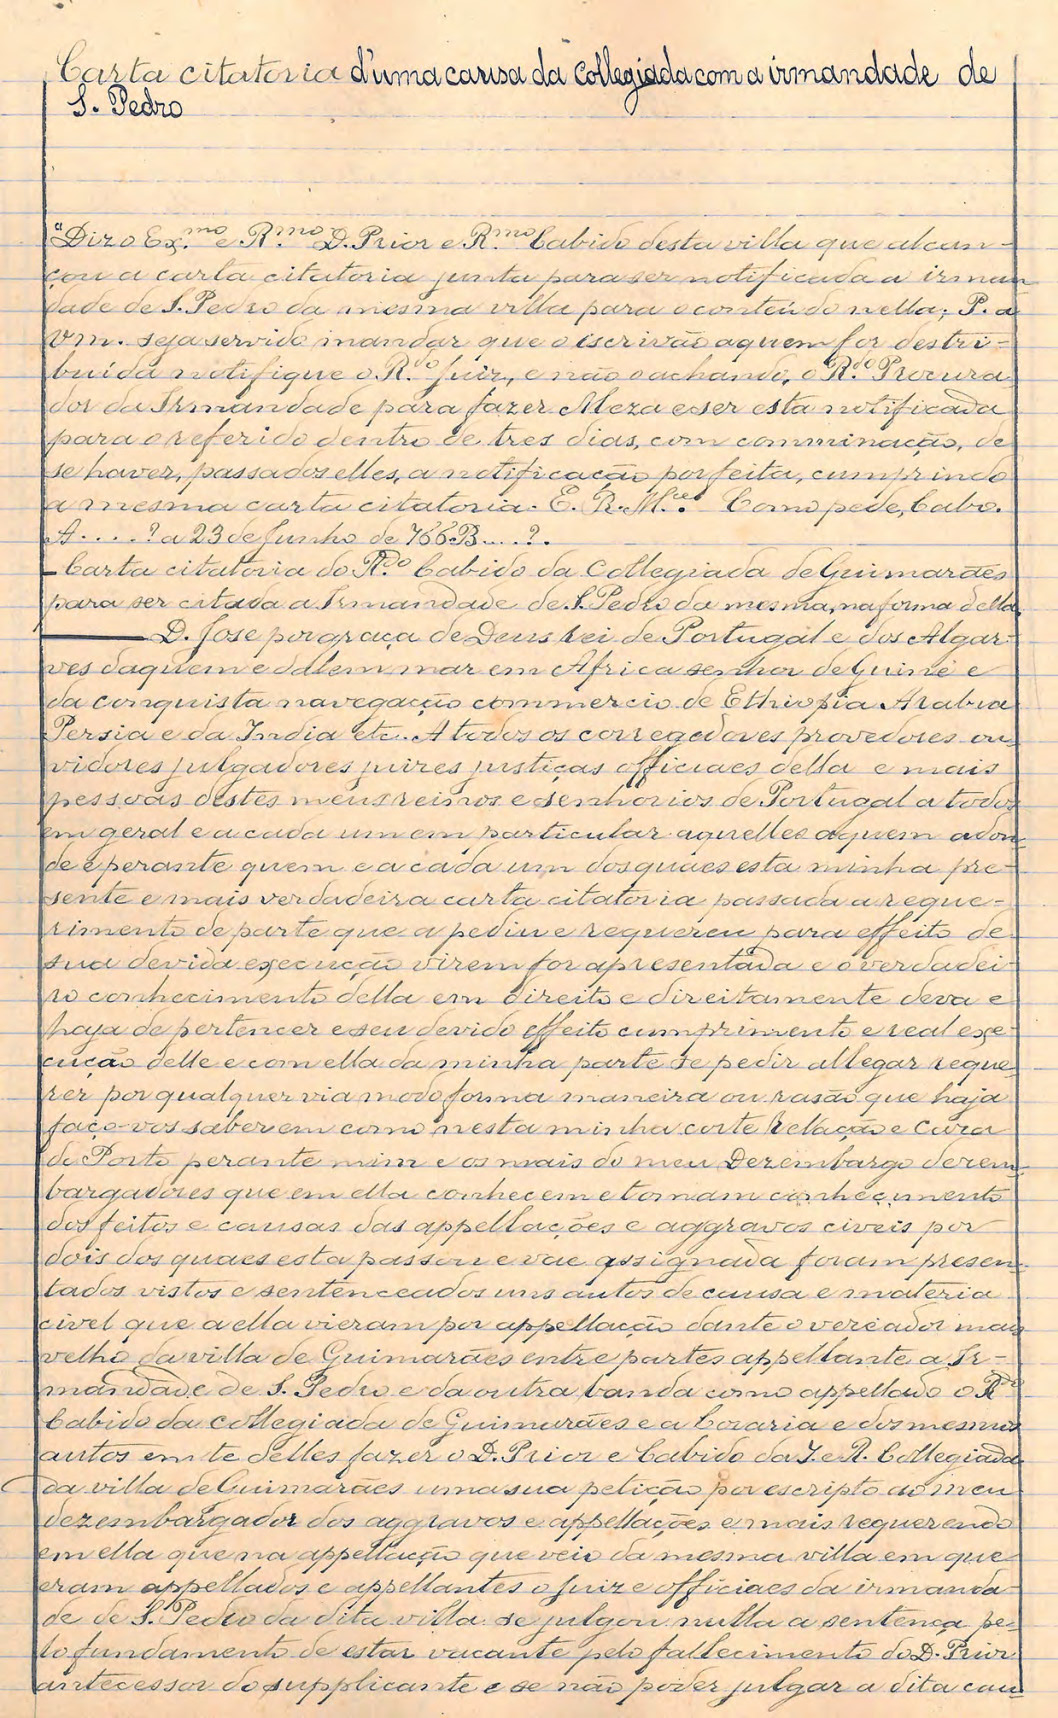 Carta citatoria d'uma causa da Collegiada com a irmandade de
S. Pedro
"Diz o Ex.mo e R.mo D. Prior e R.mo Cabido desta villa que alcan-
çou a carta citatoria junta para ser notificada a irman
dade de S. Pedro da mesma villa para o conteúdo nella; P. a
Vm. seja servido mandar que o escrivão a quem for destri-
buida notifique o R.do Juiz, e não o achando, o R.do Procura
dor da Irmandade para fazer Meza e ser esta notificada
para o referido dentro de tres dias, com comminação, de
se haver, passados elles, a notificação por feita, cumprindo
a mesma carta citatoria. E. R. M.ces Como pede, Cabo.
A....? a 23 de Junho de 766 B....?.
Carta citatoria do R.do Cabido da Collegiada de Guimarães
para ser citada a Irmandade de S. Pedro da mesma, na forma della
D. Jose por graça de Deus rei de Portugal e dos Algar-
ves daquem e dalem mar em Africa senhor de Guiné e
da conquista navegação commercio de Ethiopia Arabia
Persia e da India etc. A todos os corregedores provedores ou
vidores julgadores juizes justiças officiaes della e mais
pessoas destes meus reinos e senhorios de Portugal a todos
em geral e a cada um em particular aquelles a quem adon
de e perante quem e a cada um dos quaes esta minha pre-
sente e mais verdadeira carta citatoria passada a reque-
rimento de parte que a pediu e requereu para effeito de
sua devida execução virem for apresentada e o verdadei
ro conhecimento della em direito e direitamente deva e
haja de pertencer e seu devido effeito cumprimento e real exe-
cução delle e com ella da minha parte se pedir allegar reque
rer por qualquer via modo forma maneira ou rasão que haja
faço-vos saber em como nesta minha corte Relação e Caza
do Porto perante mim e os mais do meu Dezembargo dezem-
bargadores que em ella conhecem e tomam conhecimento
dos feitos e causas das appellações e aggravos civeis por
dois dos quaes esta passou e vae assignada foram presen-
tados vistos e sentenceados uns autos de causa e materia
civel que a ella vieram por appellação dante o vereador mais
velho da villa de Guimarães entre partes appellante a Ir-
mandade de S. Pedro e da outra banda como appellado o R.do
Cabido da Collegiada de Guimarães e a Coraria e dos mesmos
autos em te delles fazer o D. Prior e Cabido da I. e R. Collegiada
da villa de Guimarães uma sua petição por escripto ao meu
dezembargador dos aggravos e appellações e mais requerendo
em ella que na appellação que veio da mesma villa em que
eram appellados e appellantes o Juiz e officiaes da irmanda
de de S. Pedro da dita villa se julgou nulla a sentença pe-
lo fundamento de estar vacante pelo fallecimento do D. Prior
antecessor do supplicante e se não poder julgar a dita cau